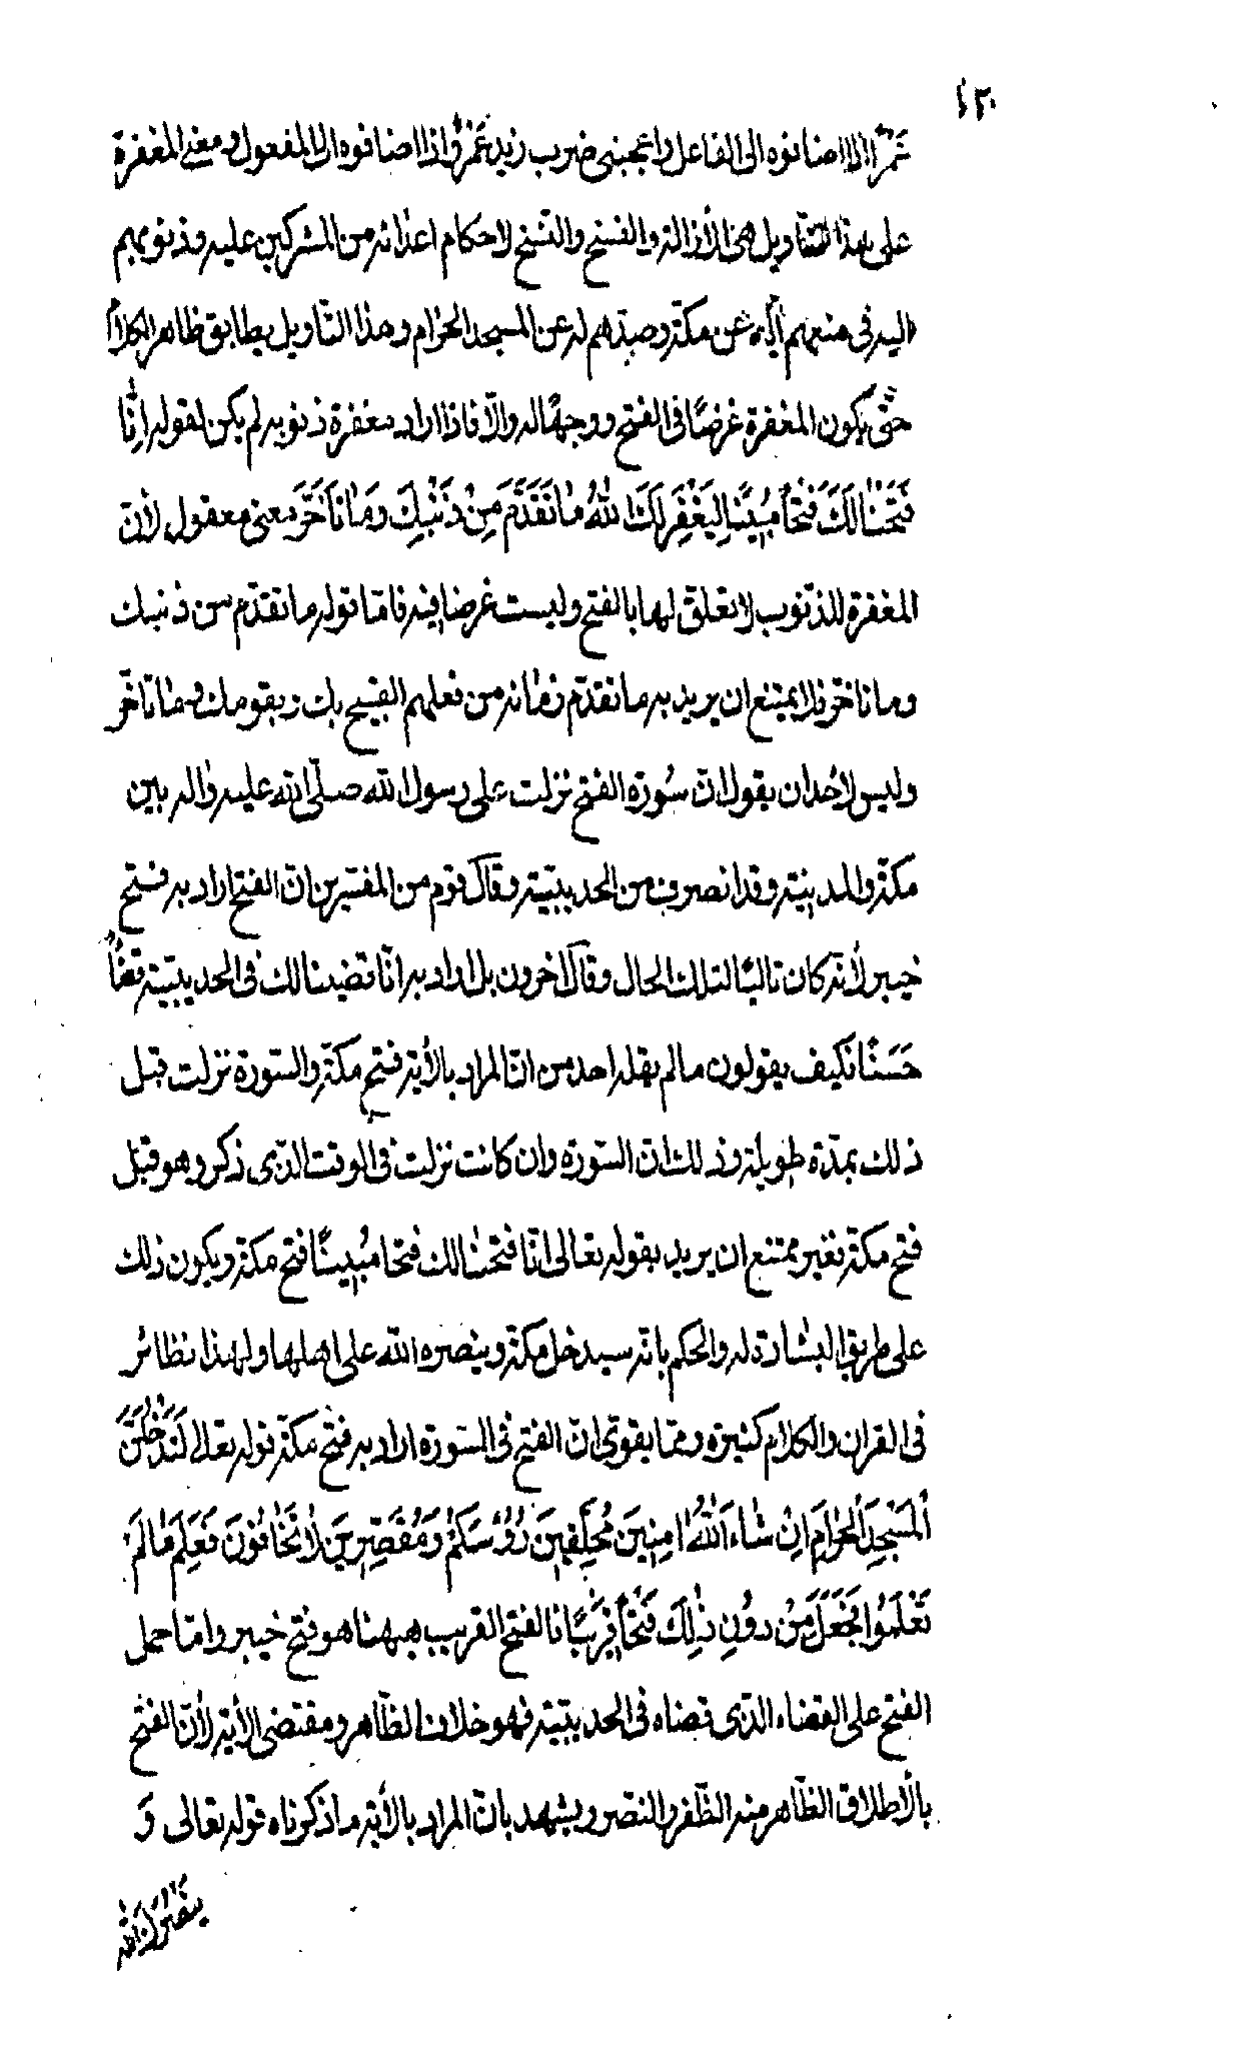 ١٣٠
عَمْرًا اذا اضافوه الى الفاعل واعجبنى ضرب زيد عَمْرٌو اذا اضافوه الى المفعول ومعنى المغفرة
على هذا التأويل هى الأزالة والفسخ والنسخ لاحكام اعدائه من المشركين عليه وذنوبهم
اليه فى منعهم ايّاه عن مكّة وصدّهم له عن المسجد الحرام وهذا التأويل يطابق ظاهر الكلام
حتّى يكون المغفرة غرضًا فى الفتح ووجهًا له والّا فاذا اراد مغفرة ذنوبه لم يكن لقوله اِنّا
فَتَحْنٰا لَكَ فَتْحًا مُبِينًا لِيَغْفِرَ لَكَ اللّٰهُ مٰا تَقَدَّمَ مِنْ ذَنْبِكَ وَمٰا تَأَخَّرَ معنى معقول لأنّ
المغفرة للذّنوب لا تعلّق لها بالفتح وليست غرضا فيه فامّا قوله ما تقدّم من ذنبك
وما تأخّر فلا يمتنع ان يريد به ما تقدّم زمانه من فعلهم القبيح بك وبقومك وما تأخّر
وليس لأحد ان يقول انّ سُورة الفتح نزلت على رسول الله صلّى الله عليه واٰله بين
مكّة والمدينة وقد انصرف من الحديبيّة وقال قوم من المفسّرين انّ الفتح اراد به فتح
خيبر لأنّه كان تاليًا لتلك الحال وقال اٰخرون بل اراد به انّا قضينا لك فى الحديبيّة قضاءً
حَسَنًا فكيف يقولون ما لم يقله احد من انّ المراد بالأية فتح مكّة والسّورة نزلت قبل
ذلك بمدّة طويلة وذلك انّ السّورة وان كانت نزلت فى الوقت الّذى ذكر وهو قبل
فتح مكّة فغير ممتنع ان يريد بقوله تعالى انّا فتحنٰا لك فتحا مُبينًا فتح مكّة ويكون ذلك
على طريق البشارة له والحكم بانّه سيدخل مكّة وينصره الله على اهلها ولهذا نظائر
فى القران والكلام كثيرة وممّا يقوّى انّ الفتح فى السّورة اراد به فتح مكّة قوله تعالى لَتَدْخُلُنَّ
اَلْمَسْجِدَ اَلْحَرٰامَ اِنْ شٰاءَ اَللّٰهُ اٰمِنِينَ مُحَلِّقِينَ رُؤُسَكُمْ وَمُقَصِّرِينَ لٰا تَخٰافُونَ فَعَلِمَ مٰا لَمْ
تَعْلَمُوا فَجَعَلَ مِنْ دُونِ ذٰلِكَ فَتْحًا قَرِيبًا فالفتح القريب هيهنا هو فتح خيبر وامّا حمل
الفتح على القضاء الّذى قضاه فى الحديبيّة فهو خلاف الظّاهر ومقتضى الأية لأنّ الفتح
بالأطلاق الظّاهر منه الظّفر والنّصر ويشهد بانّ المراد بالأية ما ذكرناه قوله تعالى وَ
يَنْصُرَكَ اللّٰهُ